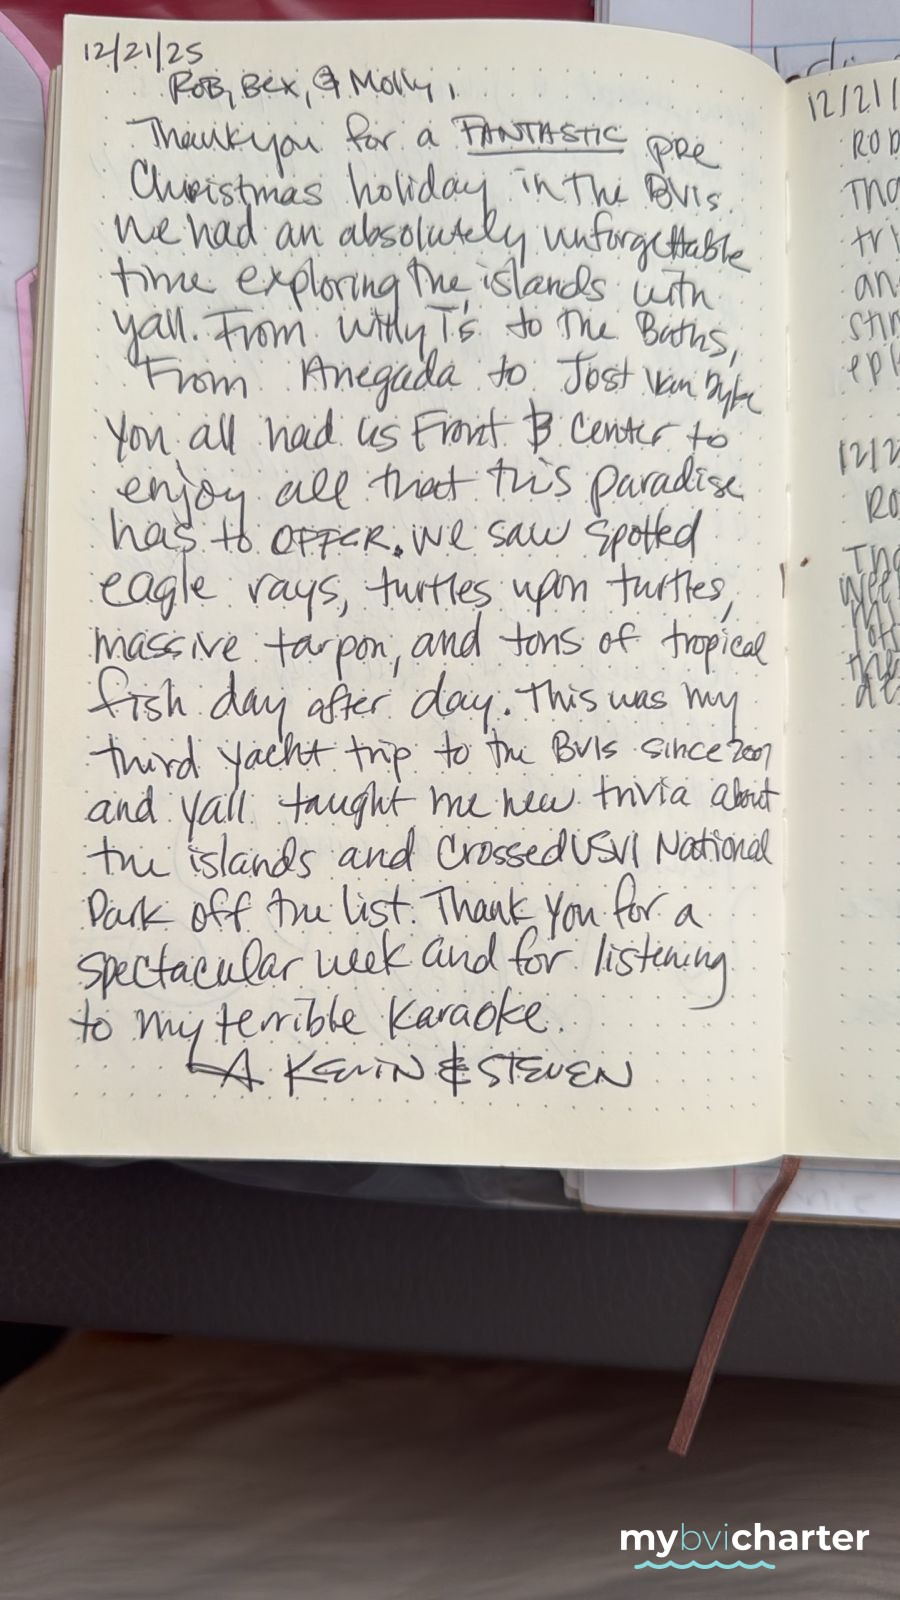 12/21/25
ROB, Bex, & Molly,
Thank you for a FANTASTIC pre
Christmas holiday in the BVIs.
We had an absolutely unforgettable
time exploring the islands with
yall. From Willy T's to the Baths,
From Anegada to Jost Van Dyke
You all had us Front & Center to
enjoy all that this paradise
has to OFFER. We saw spotted
eagle rays, turtles upon turtles,
massive tarpon, and tons of tropical
fish day after day. This was my
third yacht trip to the BVIs since 2007
and yall taught me new trivia about
the islands and crossed USVI National
Park off the list. Thank you for a
spectacular week and for listening
to my terrible Karaoke.
KEVIN & STEVEN
12/21/
ROB
tri
an
12/2
RO
mybvicharter